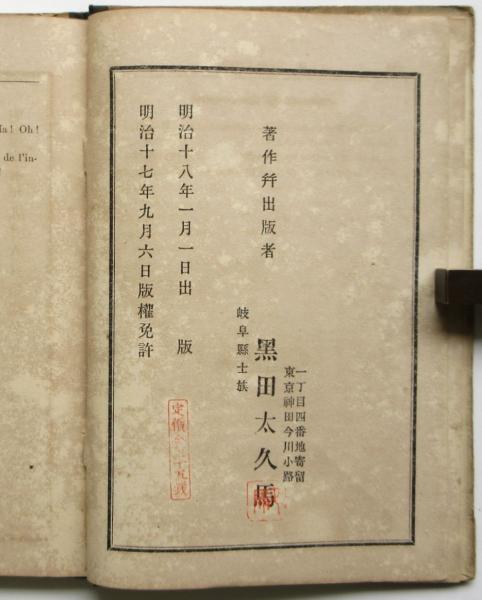 明治十七年九月六日版權免許
明治十八年一月一日出 版
著作并出版者
岐阜縣士族
黑田太久馬
東京神田今川小路
一丁目四番地寄留
定價
Ha! Oh!
de l'in-